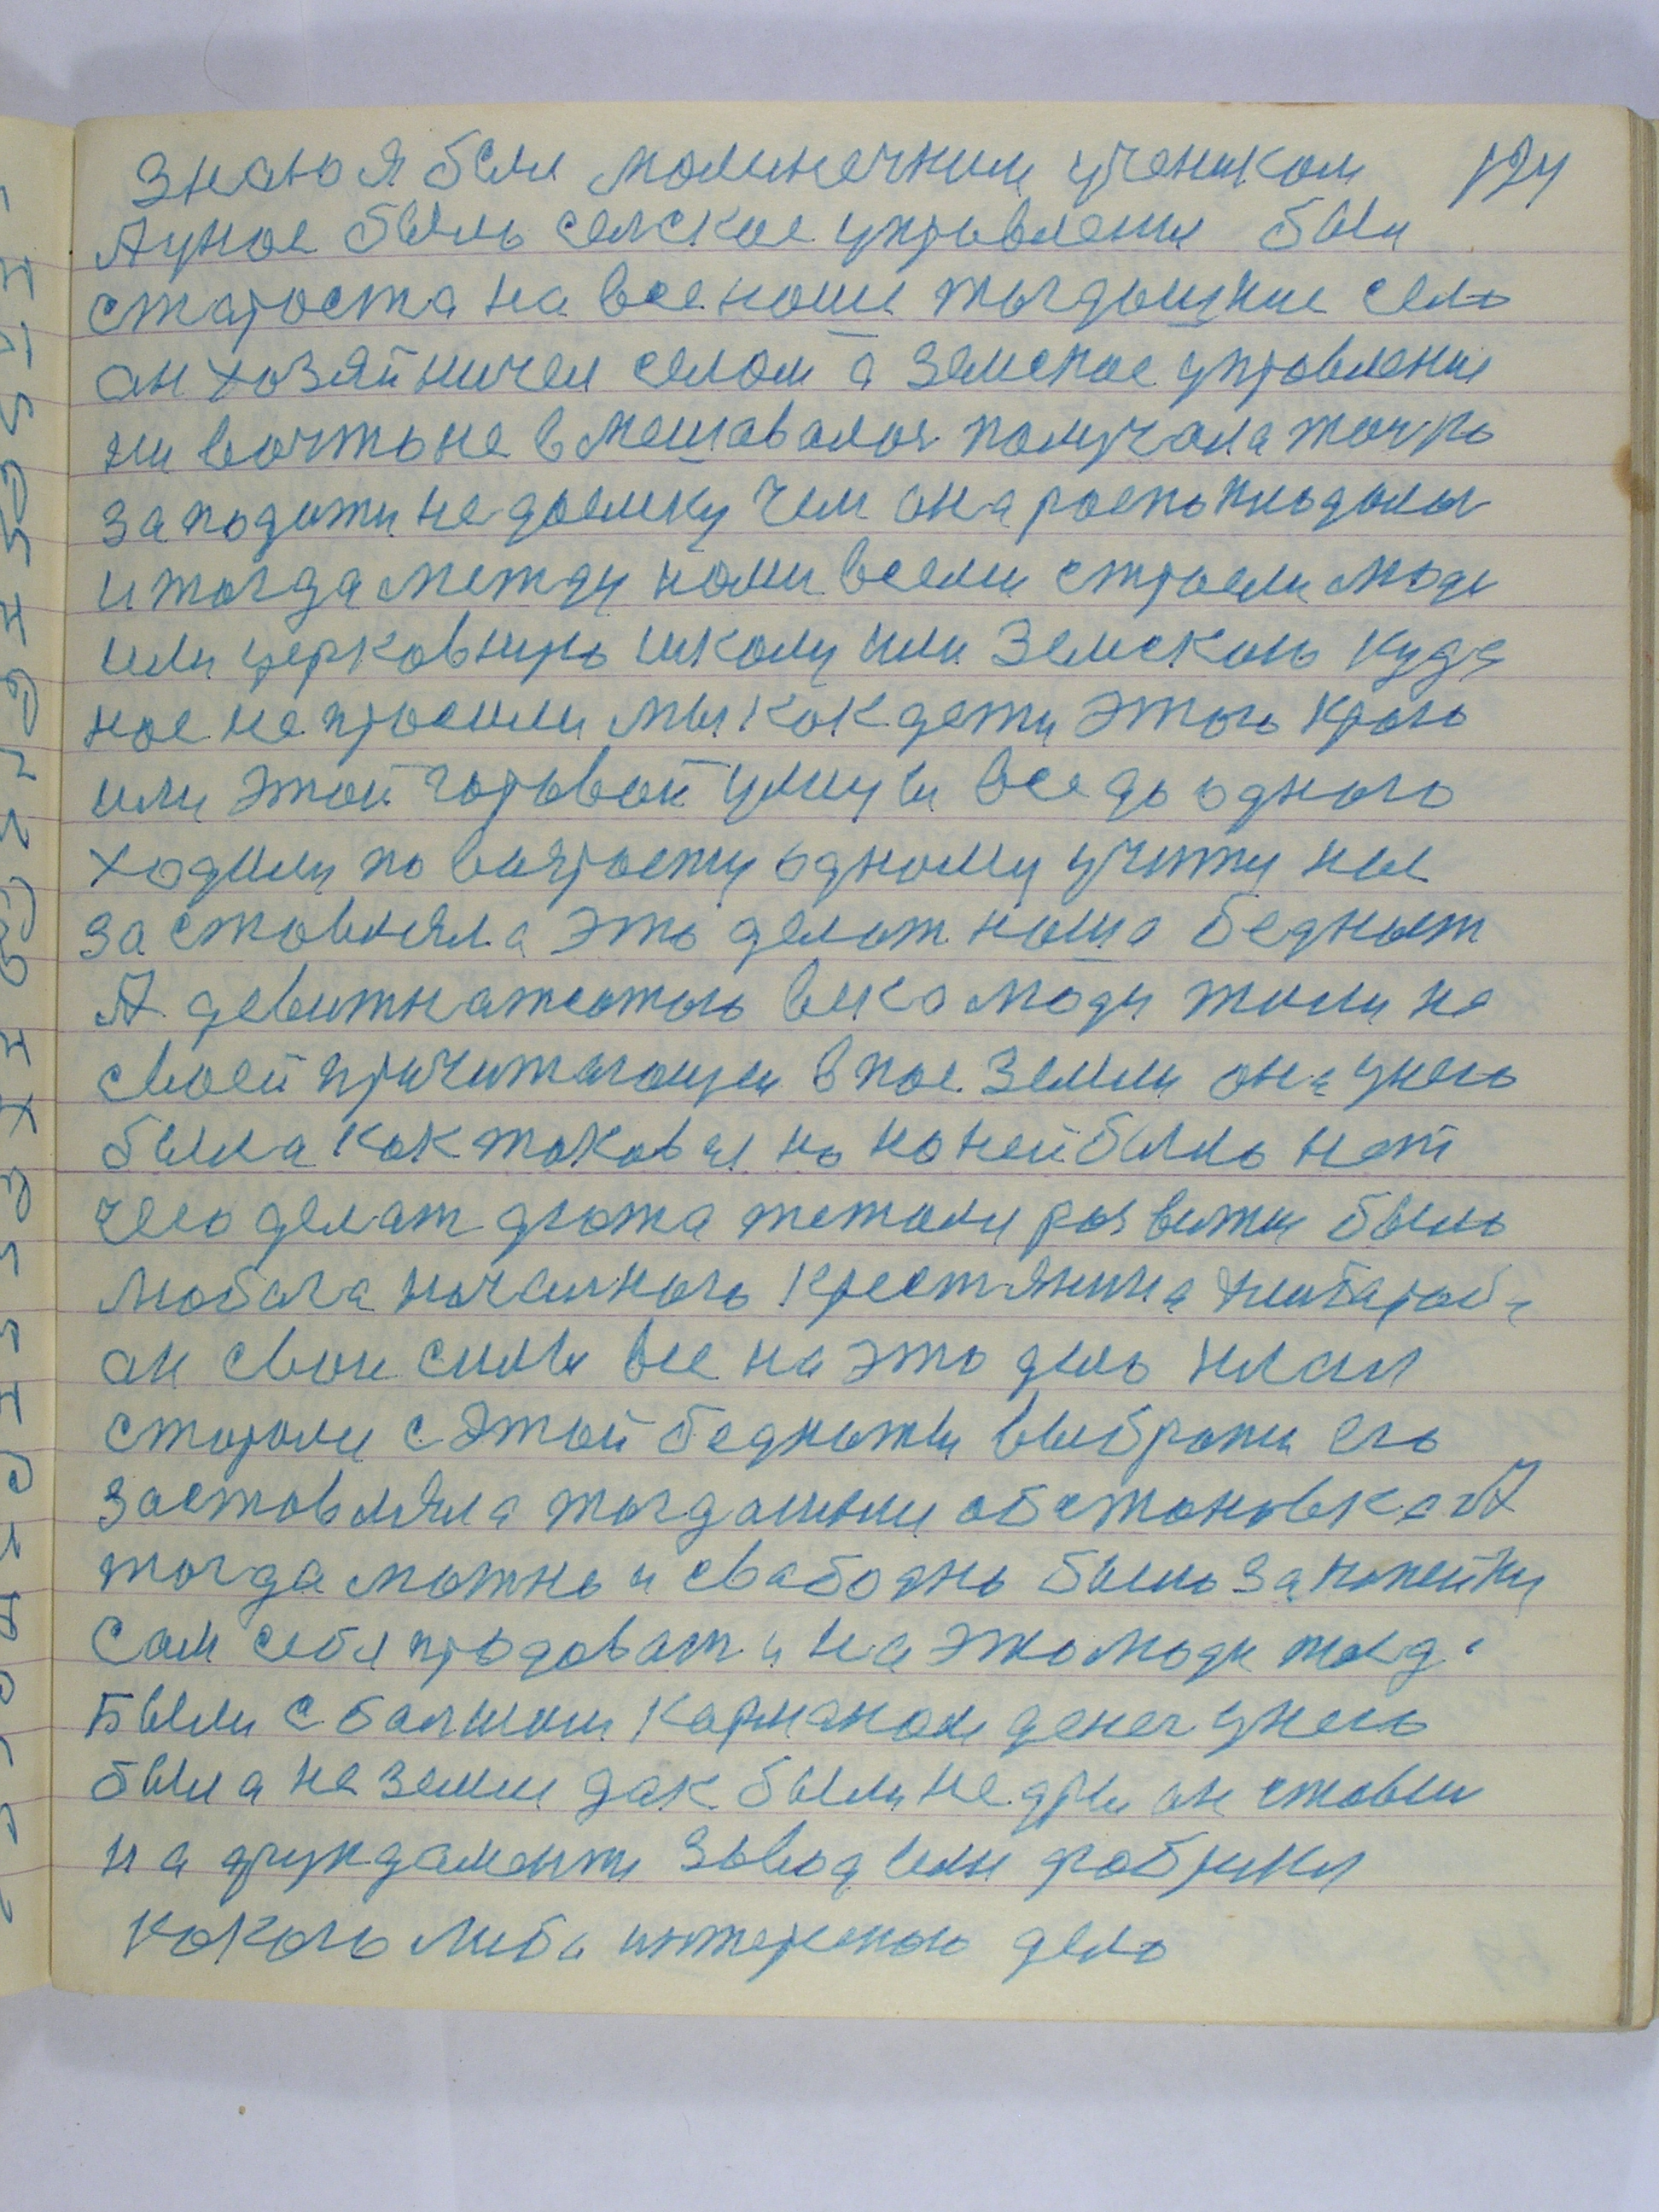 знаю я бъл малинечним учеником 124
А унас было селское управления был
староста на все наше тогдашние село
он хозяйничел селом а земское управление
ни во что не вмешавалося получала тогко
за подати недоемку чем она распоглюдалы
и тогда между нами всеми строели люди
или церковную школу или земскою куда
нас не просили мы как дети этого краю
или этой горовой улицы все до одного
ходили по возрасту одному учитц нас
заставляла это делат наша бедност
А девитнатсотого века люди жили на
своей причитающеи впое земли она унего
была как таковая но на ней было нет
чего делат дюжа тежоли развити было
любога началного крестянина
он свои силы все на это дело клал
старали с этой бедноты выбрати его
заставляла тогдашни обстановка А
тогда можно и свабодно было за копейку
сам себя продоват и на это люди тогд.
Были с балшим карманом денег унего
была не земли дак были недры он ставил
на фундаменти завод или фабрики
какого либа интересного дело